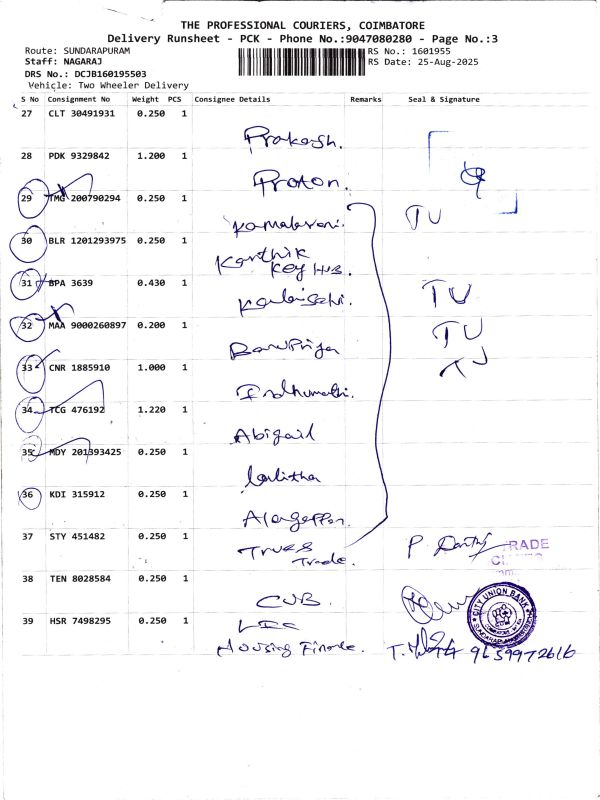 THE PROFESSIONAL COURIERS, COIMBATORE
Delivery Runsheet - PCK - Phone No.:9047080280 - Page No.:3
Route: SUNDARAPURAM
RS No.: 1601955
Staff: NAGARAJ
RS Date: 25-Aug-2025
DRS No.: DCJB160195503
Vehicle: Two Wheeler Delivery
S No Consignment No Weight PCS Consignee Details Remarks Seal & Signature
27 CLT 30491931 0.250 1
Prakash.
28 PDK 9329842 1.200 1
Proton.
29 TMG 200790294 0.250 1
Kamalaveni. TU
30 BLR 1201293975 0.250 1
Karthik
Key Hub.
31 BPA 3639 0.430 1
TU
32 MAA 9000260897 0.200 1
TU
BanuPriya
33 CNR 1885910 1.000 1
TU
Indhumathi.
34 TCG 476192 1.220 1
Abigail
35 MDY 201393425 0.250 1
Lalitha
36 KDI 315912 0.250 1
37 STY 451482 0.250 1
Trade.
TRADE
38 TEN 8028584 0.250 1
CUB.
CITY UNION BANK
39 HSR 7498295 0.250 1
LIC
Housing Finance. 9659972616